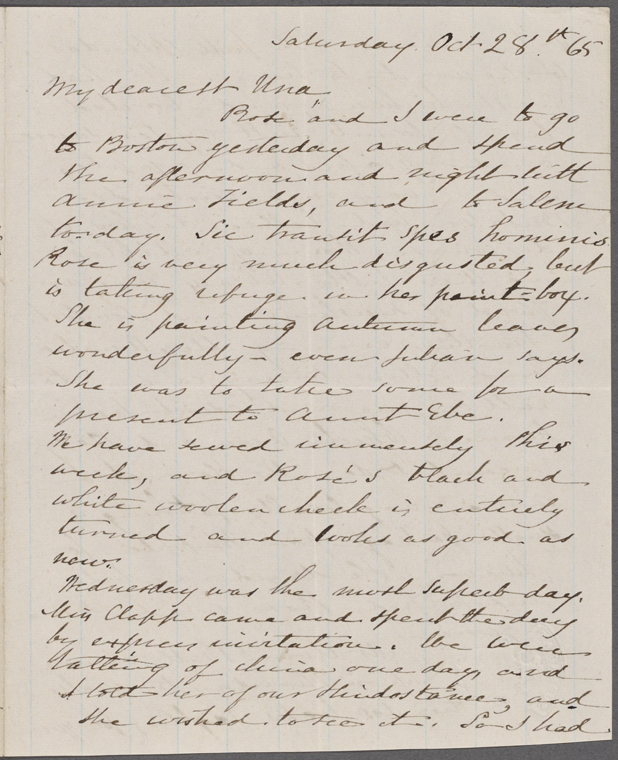 Saturday Oct 28.th 65
My dearest Una
Rose and I were to go
to Boston yesterday and spend
the afternoon and night with
Annie Fields, and to Salem
to-day. Sic transit spes hominis
Rose is very much disgusted, but
is taking refuge in her paint-box.
She is painting autumn leaves
wonderfully - even Julian says.
She was to take some for a
present to Aunt Ebe.
We have sewed immensely this
week, and Rose's black and
white woolen check is entirely
turned and looks as good as
new.
Wednesday was the most superb day.
Miss Clapp came and spent the day
by express invitation. We were
talking of china one day and
I told her of our Hindostanee, and
she wished to see it. So I had